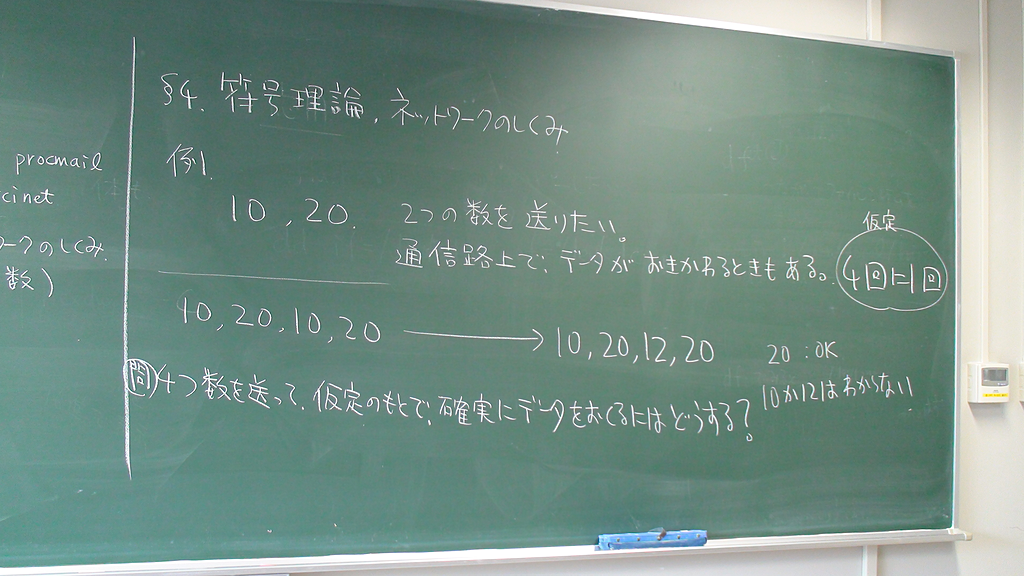 procmail
cinet
ワークのしくみ.
数)
§4. 符号理論, ネットワークのしくみ
例1.
10, 20. 2つの数を送りたい。
通信路上で、データがおきかわるときもある。
仮定
4回に1回
10, 20, 10, 20 → 10, 20, 12, 20 20 : OK
10か12はわからない
問 4つ数を送って、仮定のもとで、確実にデータをおくるにはどうする?